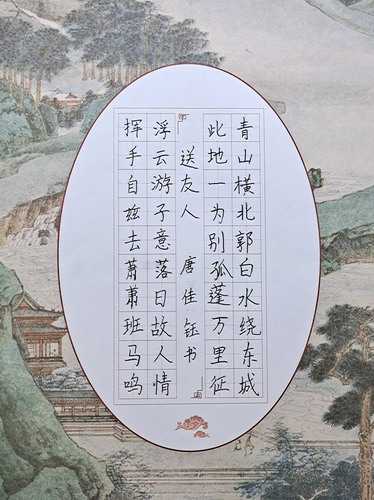 青山横北郭白水绕东城
此地一为别孤蓬万里征
送友人 唐佳钰书
浮云游子意落日故人情
挥手自兹去萧萧班马鸣